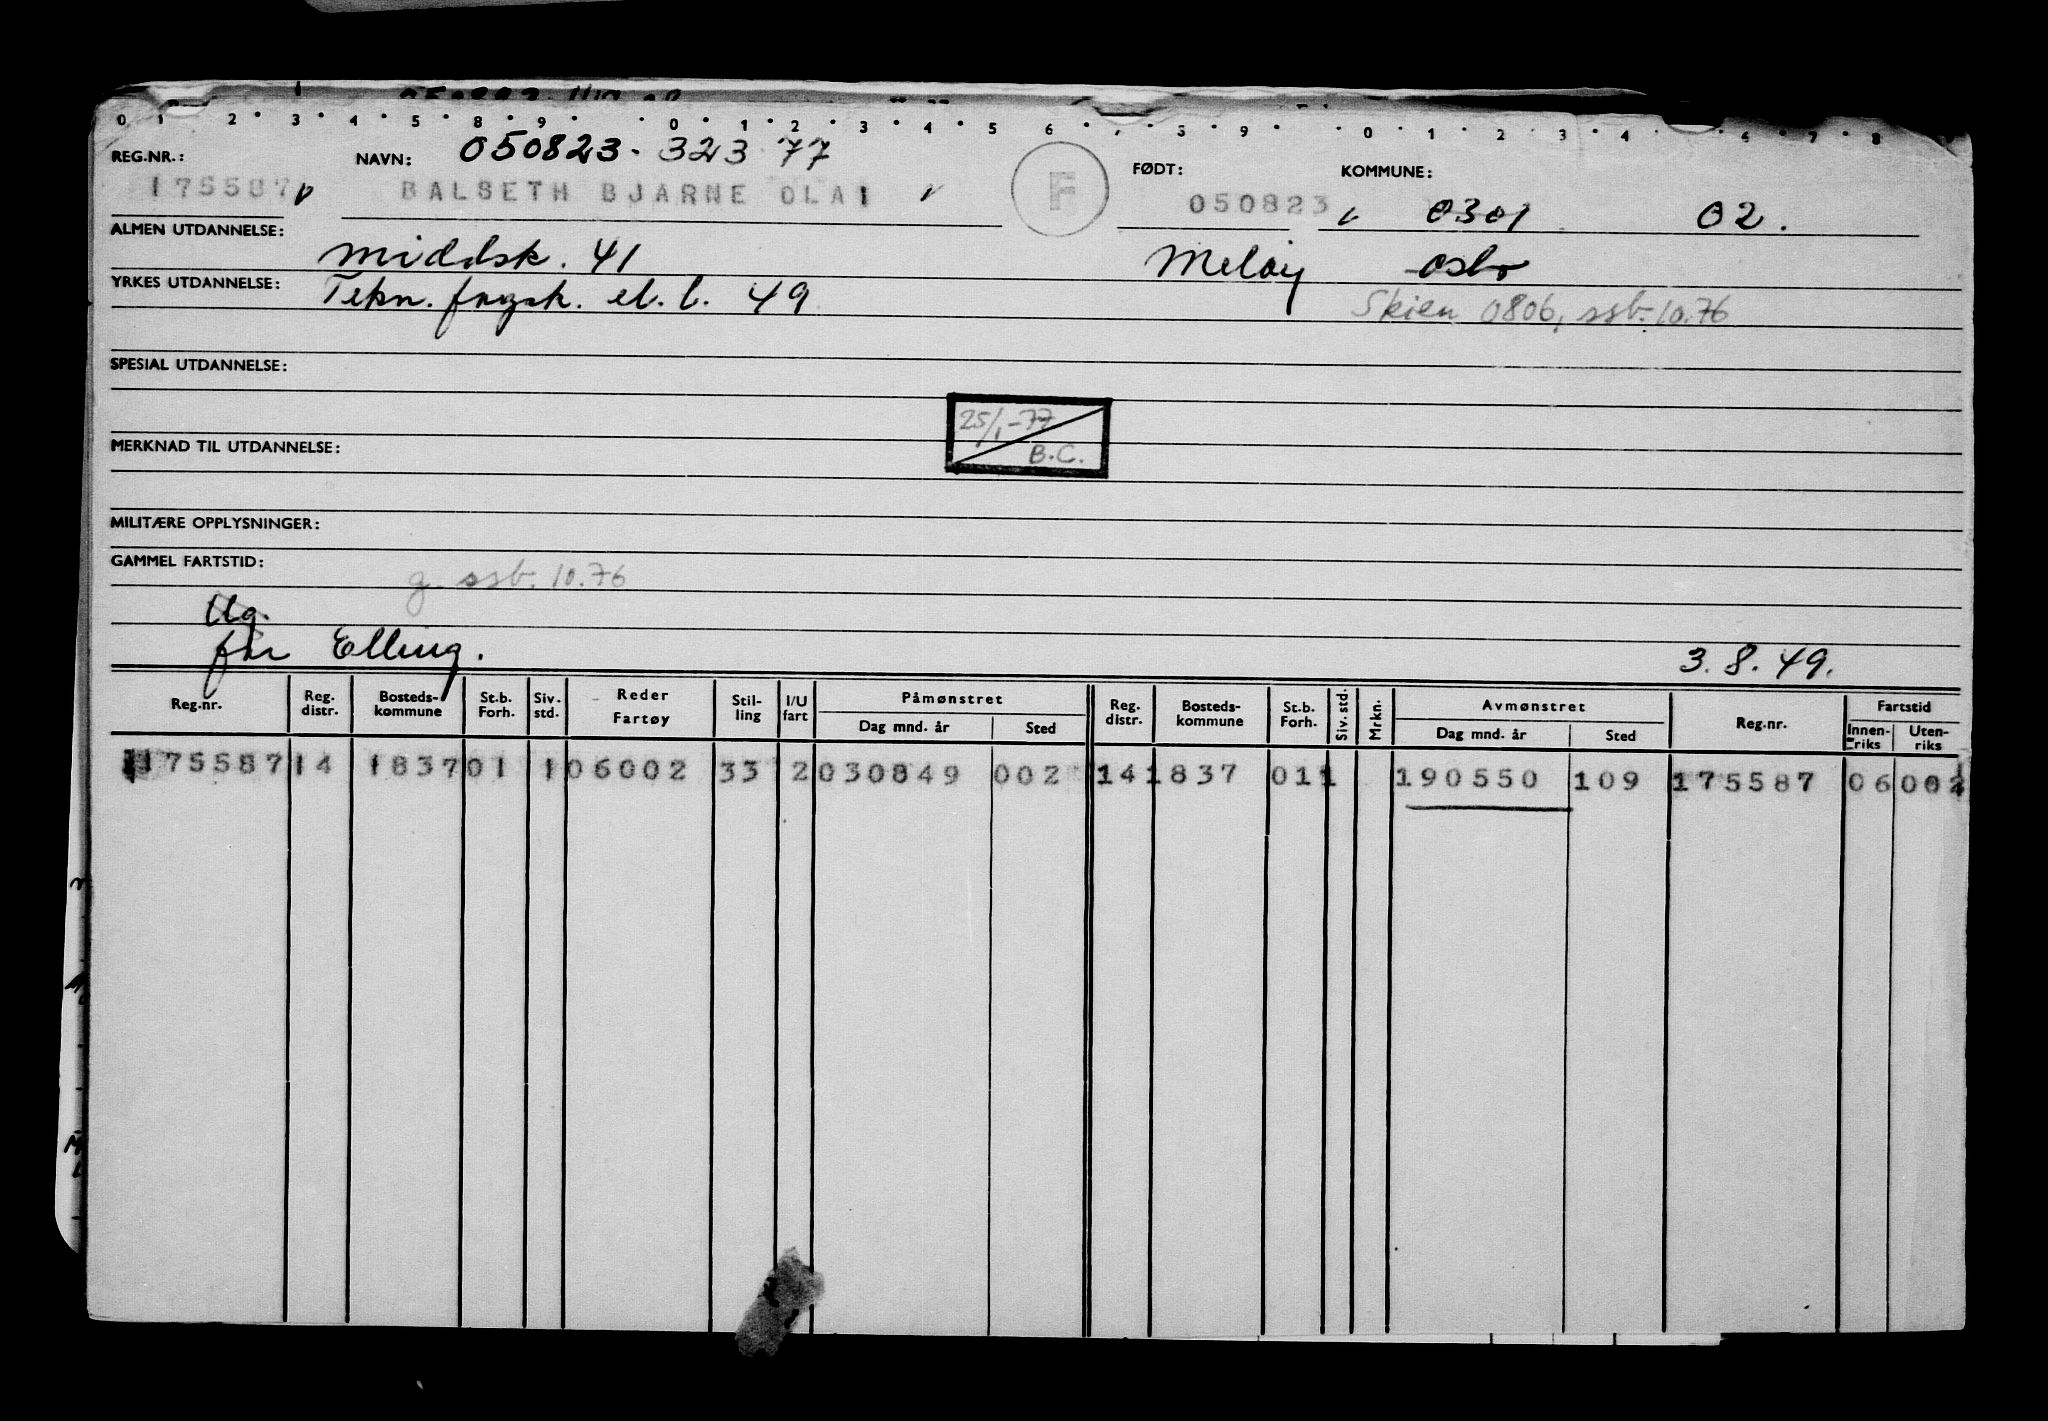 0 1 2 3 4 5 8 9 0 1 2 3 4 5 6 7 8 9 0 1 2 3 4 6 7 8
REG.NR.: NAVN: 050823. 323 77 FØDT: KOMMUNE:
175587 BALSETH BJARNE OLAI F 050823 0301 02.
ALMEN UTDANNELSE: Middsk. 41 Meløy Oslo
YRKES UTDANNELSE: Tekn. fagsk. el. l. 49 Skien 0806, ssb. 10.76
SPESIAL UTDANNELSE:
25/1-77
B.C.
MERKNAD TIL UTDANNELSE:
MILITÆRE OPPLYSNINGER:
GAMMEL FARTSTID: g. ssb. 10.76
Ug.
far Elling. 3.8.49.
Reg.nr. Reg. distr. Bosteds-kommune St.b. Forh. Siv. std. Reder Fartøy Stil-ling I/U fart Påmønstret Dag mnd. år Sted Reg. distr. Bosteds-kommune St.b. Forh. Siv. std. Mrkn. Avmønstret Dag mnd. år Sted Reg.nr. Fartstid Innen-riks Uten-riks
175587 14 1837 01 1 06002 33 2 030849 002 14 1837 01 1 190550 109 175587 06 002